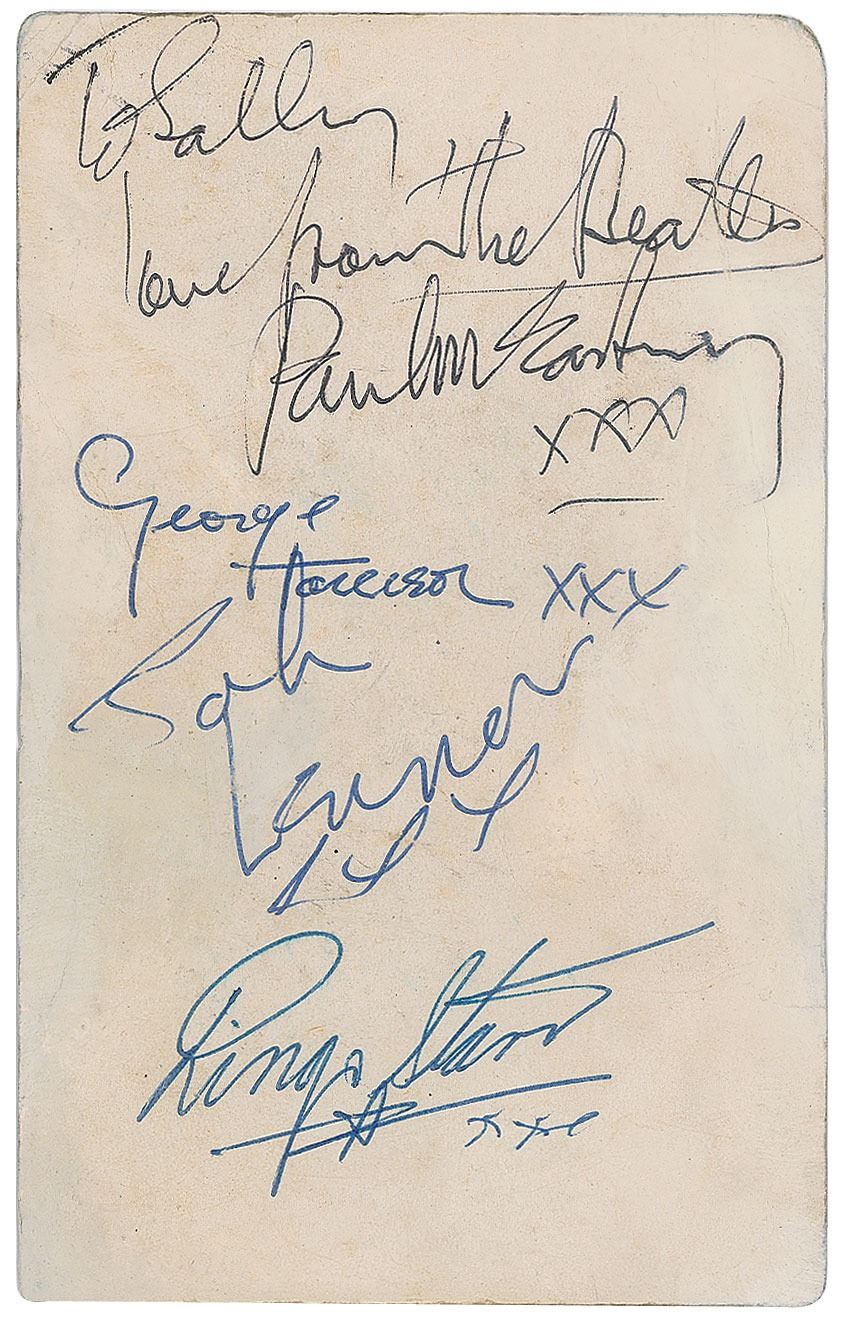 To Sally
love from The Beatles
Paul McCartney
xxx
George
Harrison xxx
John
Lennon
xxx
Ringo Starr
xxx